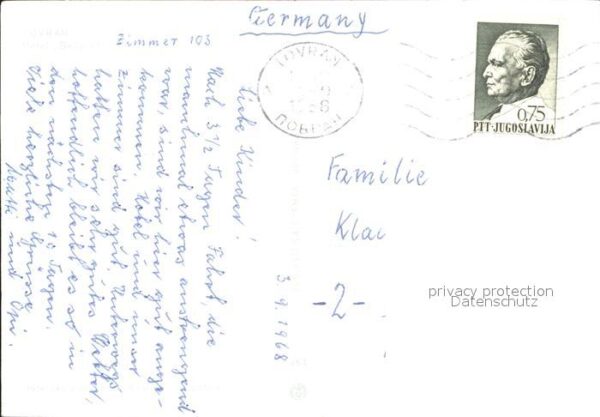 Germany
Zimmer 103
LOVRAN
ЛОВРАН
0,75
PTT-JUGOSLAVIJA
3.9.1968
Liebe Kinder!
Nach 3 1/2 Tagen Fahrt, die
manchmal etwas anstrengend
war, sind wir hier gut ange-
kommen. Hotel und unser
Zimmer sind gut. Unterwegs
hatten wir sehr gutes Wetter,
hoffentlich bleibt es so in
den nächsten 10 Tagen.
Viele herzliche Grüsse
und Opi.
Familie
Klau
-2-
privacy protection
Datenschutz